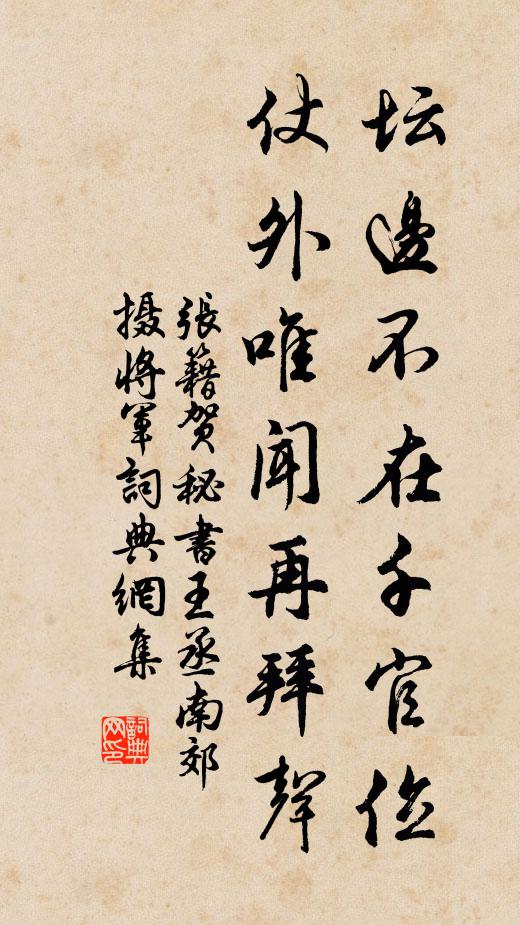 坛邊不在千官位
仗外唯聞再拜聲
張籍賀秘書王丞南郊
摄將軍詞典網集
詞典
网印